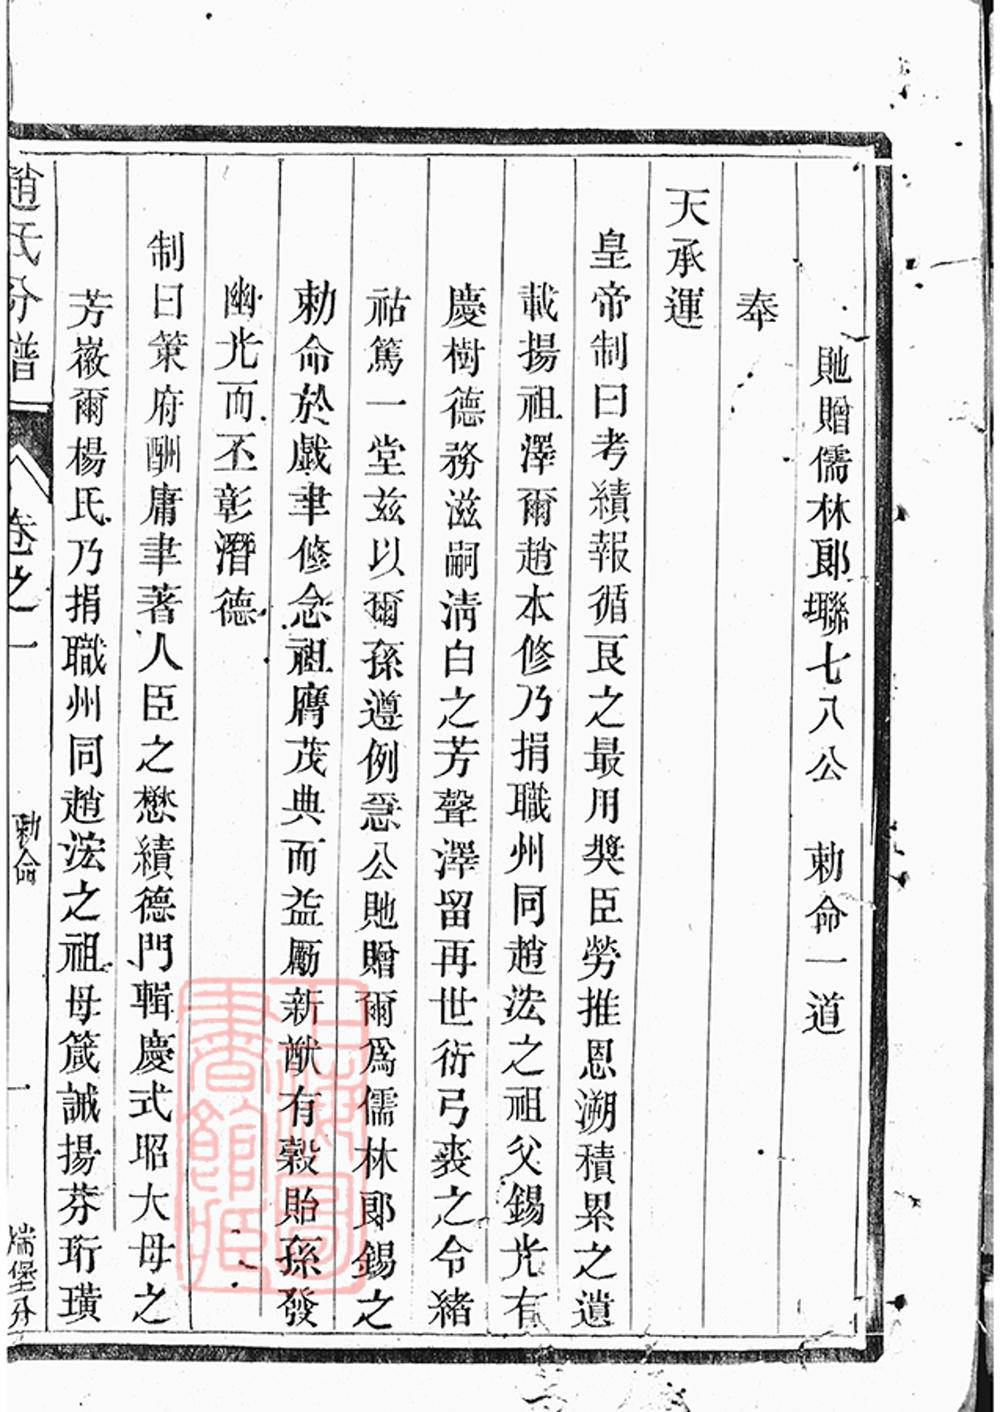 貤贈儒林郎聯七八公　勅命一道
奉
天承運
皇帝制曰考績報循良之最用獎臣勞推恩溯積累之遺
載揚祖澤爾趙本修乃捐職州同趙浤之祖父錫光有
慶樹德務滋嗣淸白之芳聲澤留再世衍弓裘之令緒
祜篤一堂玆以爾孫遵例急公貤贈爾爲儒林郎錫之
勅命於戲聿修念祖膺茂典而益勵新猷有穀貽孫發
幽光而丕彰潛德
制曰策府酬庸聿著人臣之懋績德門輯慶式昭大母之
芳徽爾楊氏乃捐職州同趙浤之祖母箴誡揚芬珩璜
趙氏分譜
卷之一
勅命
一
瑞堡分
上海圖書館藏